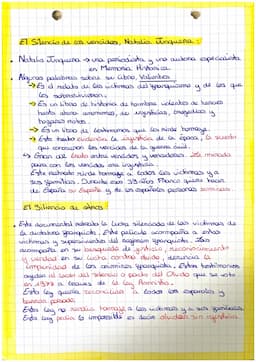 El Silencio de los vencidos, Natalia Junquera :
• Natalia Junquera → una periodista y una autora especialista
en Memoria Histórica
• Algunas palabras sobre su libro, Valientes
→ Es el relato de las víctimas del franquismo y de los que
los sobrevivieron.
→ Es un libro de historias de hombres valientes de heroes
hasta ahora anónimos, de injusticias, tragedias y
hogares rotos.
→ Es un libro de testimonios que les rinde homenaje.
→ Este texto evidencia la injusticia de la época, la suerte
que conocieron los vencidos de la guerra civil.
→ Gran del trato entre vencidos y vencedores. La mirada
para con los vencidos era
Este extracto rinde homenaje a todas las víctimas y a
sus familias. Durante esos 39 años Franco quiso hacer
de España su España y de los españoles personas sumisas.
El Silencio de otros
Este documental retrata la lucha silenciada de las víctimas de
la dictadura franquista. Esta película acompaña a estas
víctimas y supervivientes del régimen franquista. Los
acompaña en su búsqueda de justicia, reconocimiento
y verdad en su lucha contra olvido, denuncia la
impunidad de los crímenes franquistas. Estos testimonios
ayudan al pacto del silencio o pacto del Olvido que se votó
en 1977 a través de la ley Amnistía.
Esta ley quería reconciliar a todos los españoles y
borrar pasado
Esta ley no rendía homenaje a las víctimas y a sus familiares.
Esta ley pedía lo imposible es decir olvidar sin injusticia.